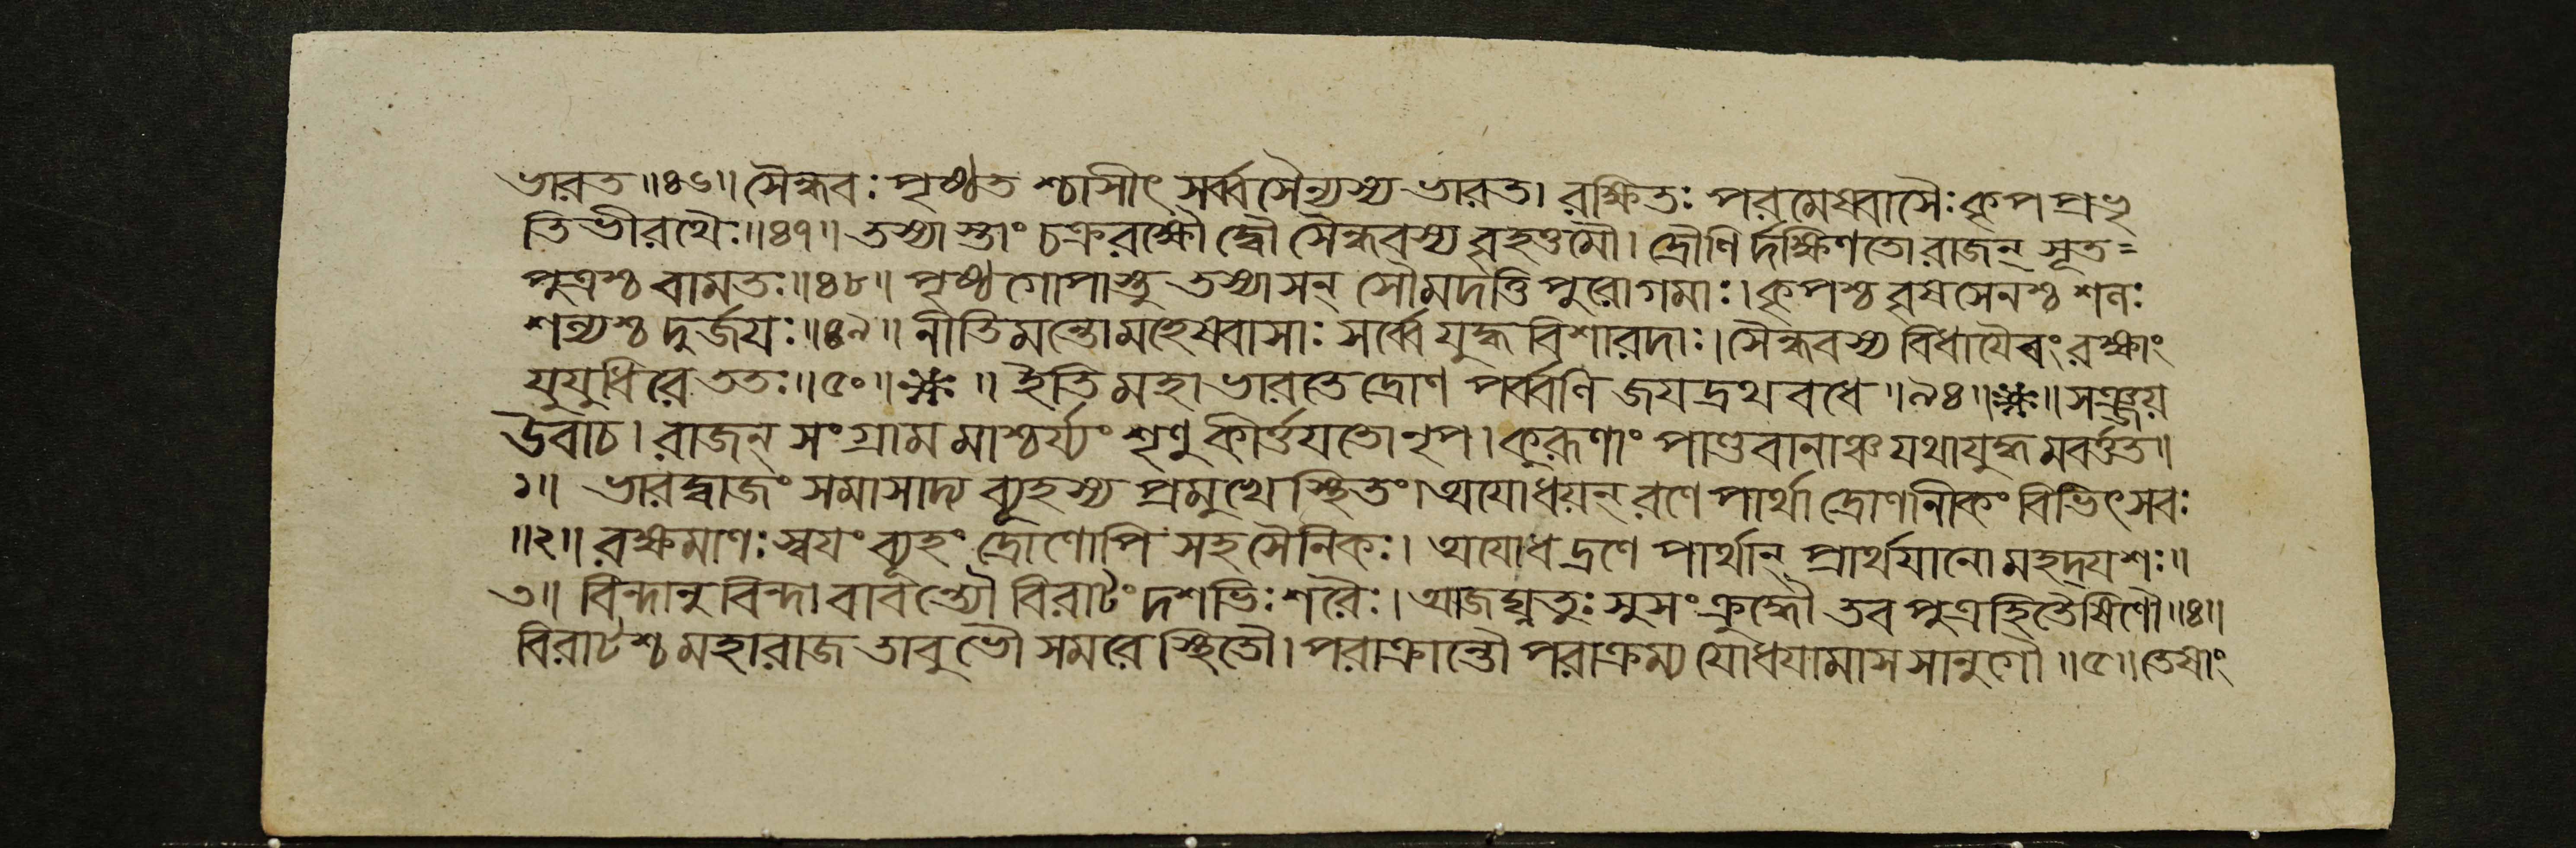 ভারত॥৪৬॥ সৈন্ধবঃ পৃষ্ঠত শ্চাসীৎ সর্ব্বসৈন্যস্য ভারত। রক্ষিতঃ পরমেষ্বাসৈঃ কৃপ প্রভৃ
তিভীরথৈঃ॥৪৭॥ তস্যাস্তাং চক্ররক্ষৌ দ্বৌ সৈন্ধবস্য বৃহত্তমৌ। দ্রৌণি র্দক্ষিণতো রাজন্ সূত=
পুত্রশ্চ বামতঃ॥৪৮॥ পৃষ্ঠ গোপাস্তু তস্যাসন্ সৌমদত্তি পুরোগমাঃ। কৃপশ্চ বৃষসেনশ্চ শলঃ
শল্যশ্চ দুর্জয়ঃ॥৪৯॥ নীতিমন্তো মহেষ্বাসাঃ সর্ব্বে যুদ্ধ বিশারদাঃ। সৈন্ধবস্য বিধাযৈবং রক্ষাং
যুযুধিরে ততঃ॥৫০॥ ॥ ইতি মহাভারতে দ্রোণ পর্ব্বণি জয়দ্রথ বধে॥৯৪॥ ॥ সঞ্জয়
উবাচ। রাজন্ সংগ্রাম মাশ্চর্য্যং শৃণু কীর্ত্তয়তো নৃপ। কুরূণাং পাণ্ডবানাঞ্চ যথা যুদ্ধ মবর্ত্তত॥
১॥ ভারদ্বাজং সমাসাদ্য ব্যূহস্য প্রমুখে স্থিতং। অযোধয়ন্ রণে পার্থা দ্রোণানীকং বিভিৎসবঃ
॥২॥ রক্ষমাণঃ স্বযং ব্যূহং দ্রোণোপি সহ সৈনিকঃ। অযোধ দ্রণে পার্থান্ প্রার্থযানো মহদ্যশঃ॥
৩॥ বিন্দানু বিন্দা বাবন্ত্যৌ বিরাটং দশভিঃ শরৈঃ। আজঘ্নতুঃ সুসংক্রুদ্ধৌ তব পুত্র হিতৈষিণৌ॥৪॥
বিরাটশ্চ মহারাজ তাবুভৌ সমরে স্থিতৌ। পরাক্রান্তৌ পরাক্রম্য যোধযামাস সানুগৌ॥৫॥ তেষাং